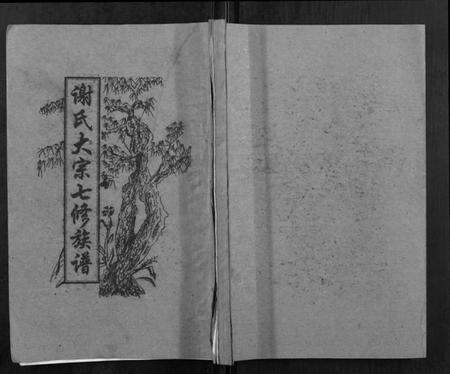 谢氏大宗七修族谱